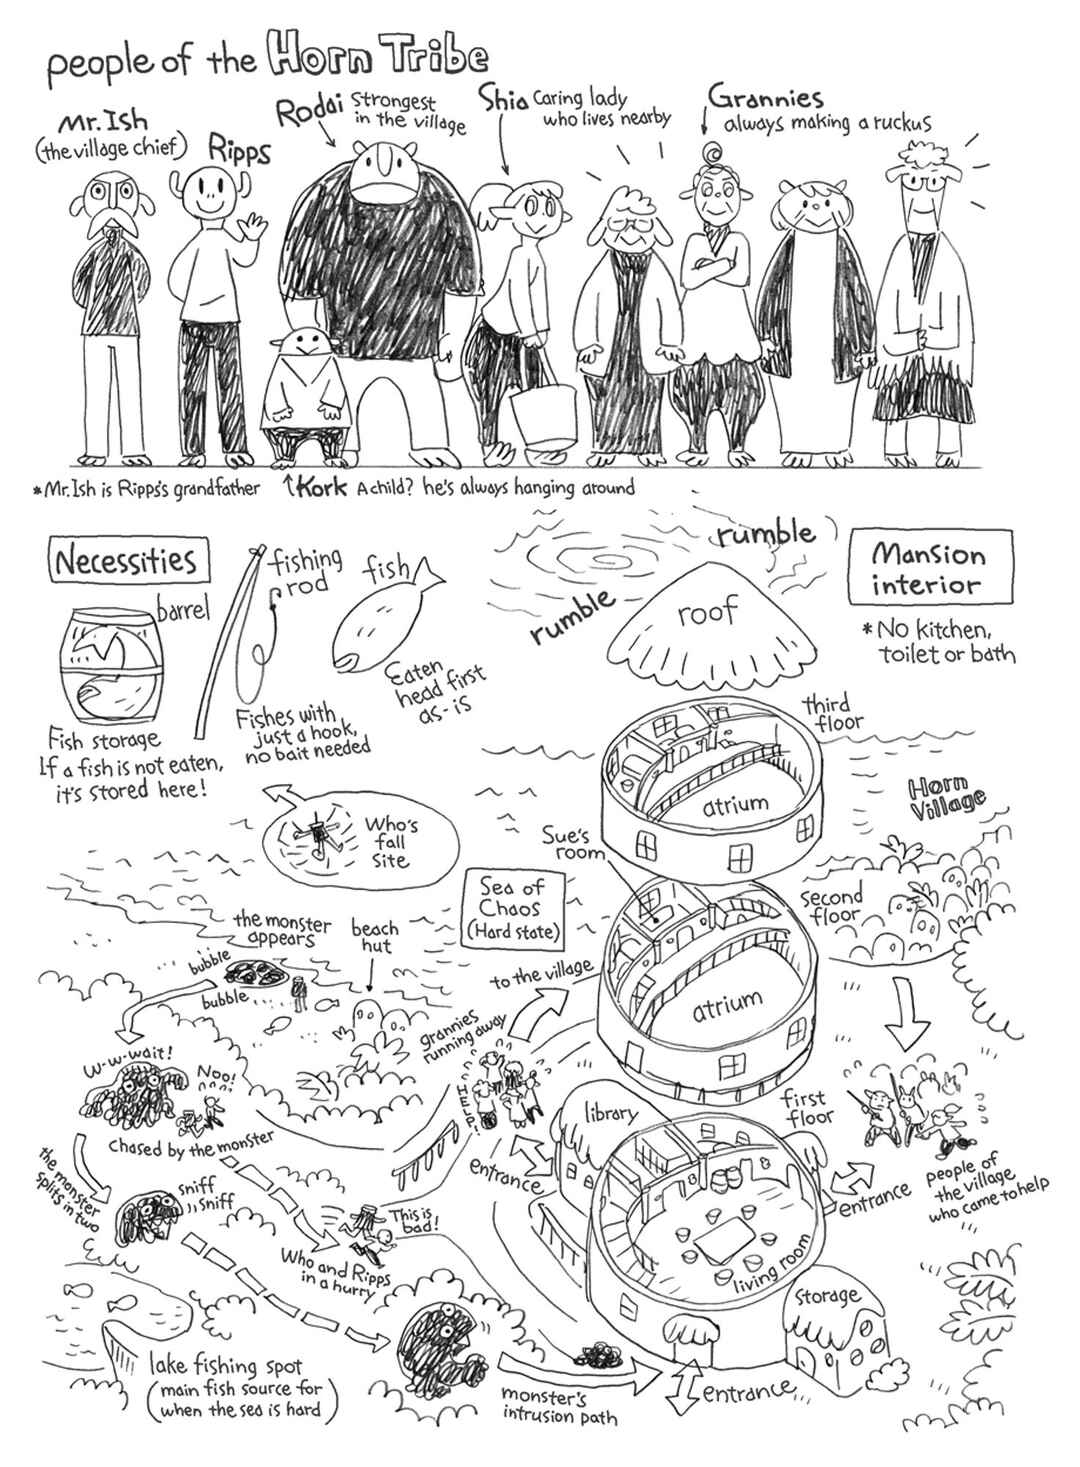 people of the Horn Tribe
Mr. Ish
(the village chief)
Ripps
Rodai Strongest
in the village
Shia Caring lady
who lives nearby
Grannies
always making a ruckus
*Mr. Ish is Ripps's grandfather
↑Kork A child? he's always hanging around
Necessities
barrel
Fish storage
If a fish is not eaten,
it's stored here!
fishing
rod
Fishes with
just a hook,
no bait needed
fish
Eaten
head first
as-is
rumble
rumble
roof
Mansion
interior
*No kitchen,
toilet or bath
third
floor
atrium
Horn
Village
Who's
fall
site
Sue's
room
Sea of
Chaos
(Hard state)
second
floor
atrium
the monster
appears
beach
hut
bubble
bubble
to the village
grannies
running away
HELP!
W-w-wait!
Noo!
Chased by the monster
the monster
splits in two
sniff
sniff
This is
bad!
Who and Ripps
in a hurry
library
first
floor
entrance
entrance
people of
the village
who came to help
living room
storage
lake fishing spot
(main fish source for
when the sea is hard)
monster's
intrusion path
entrance